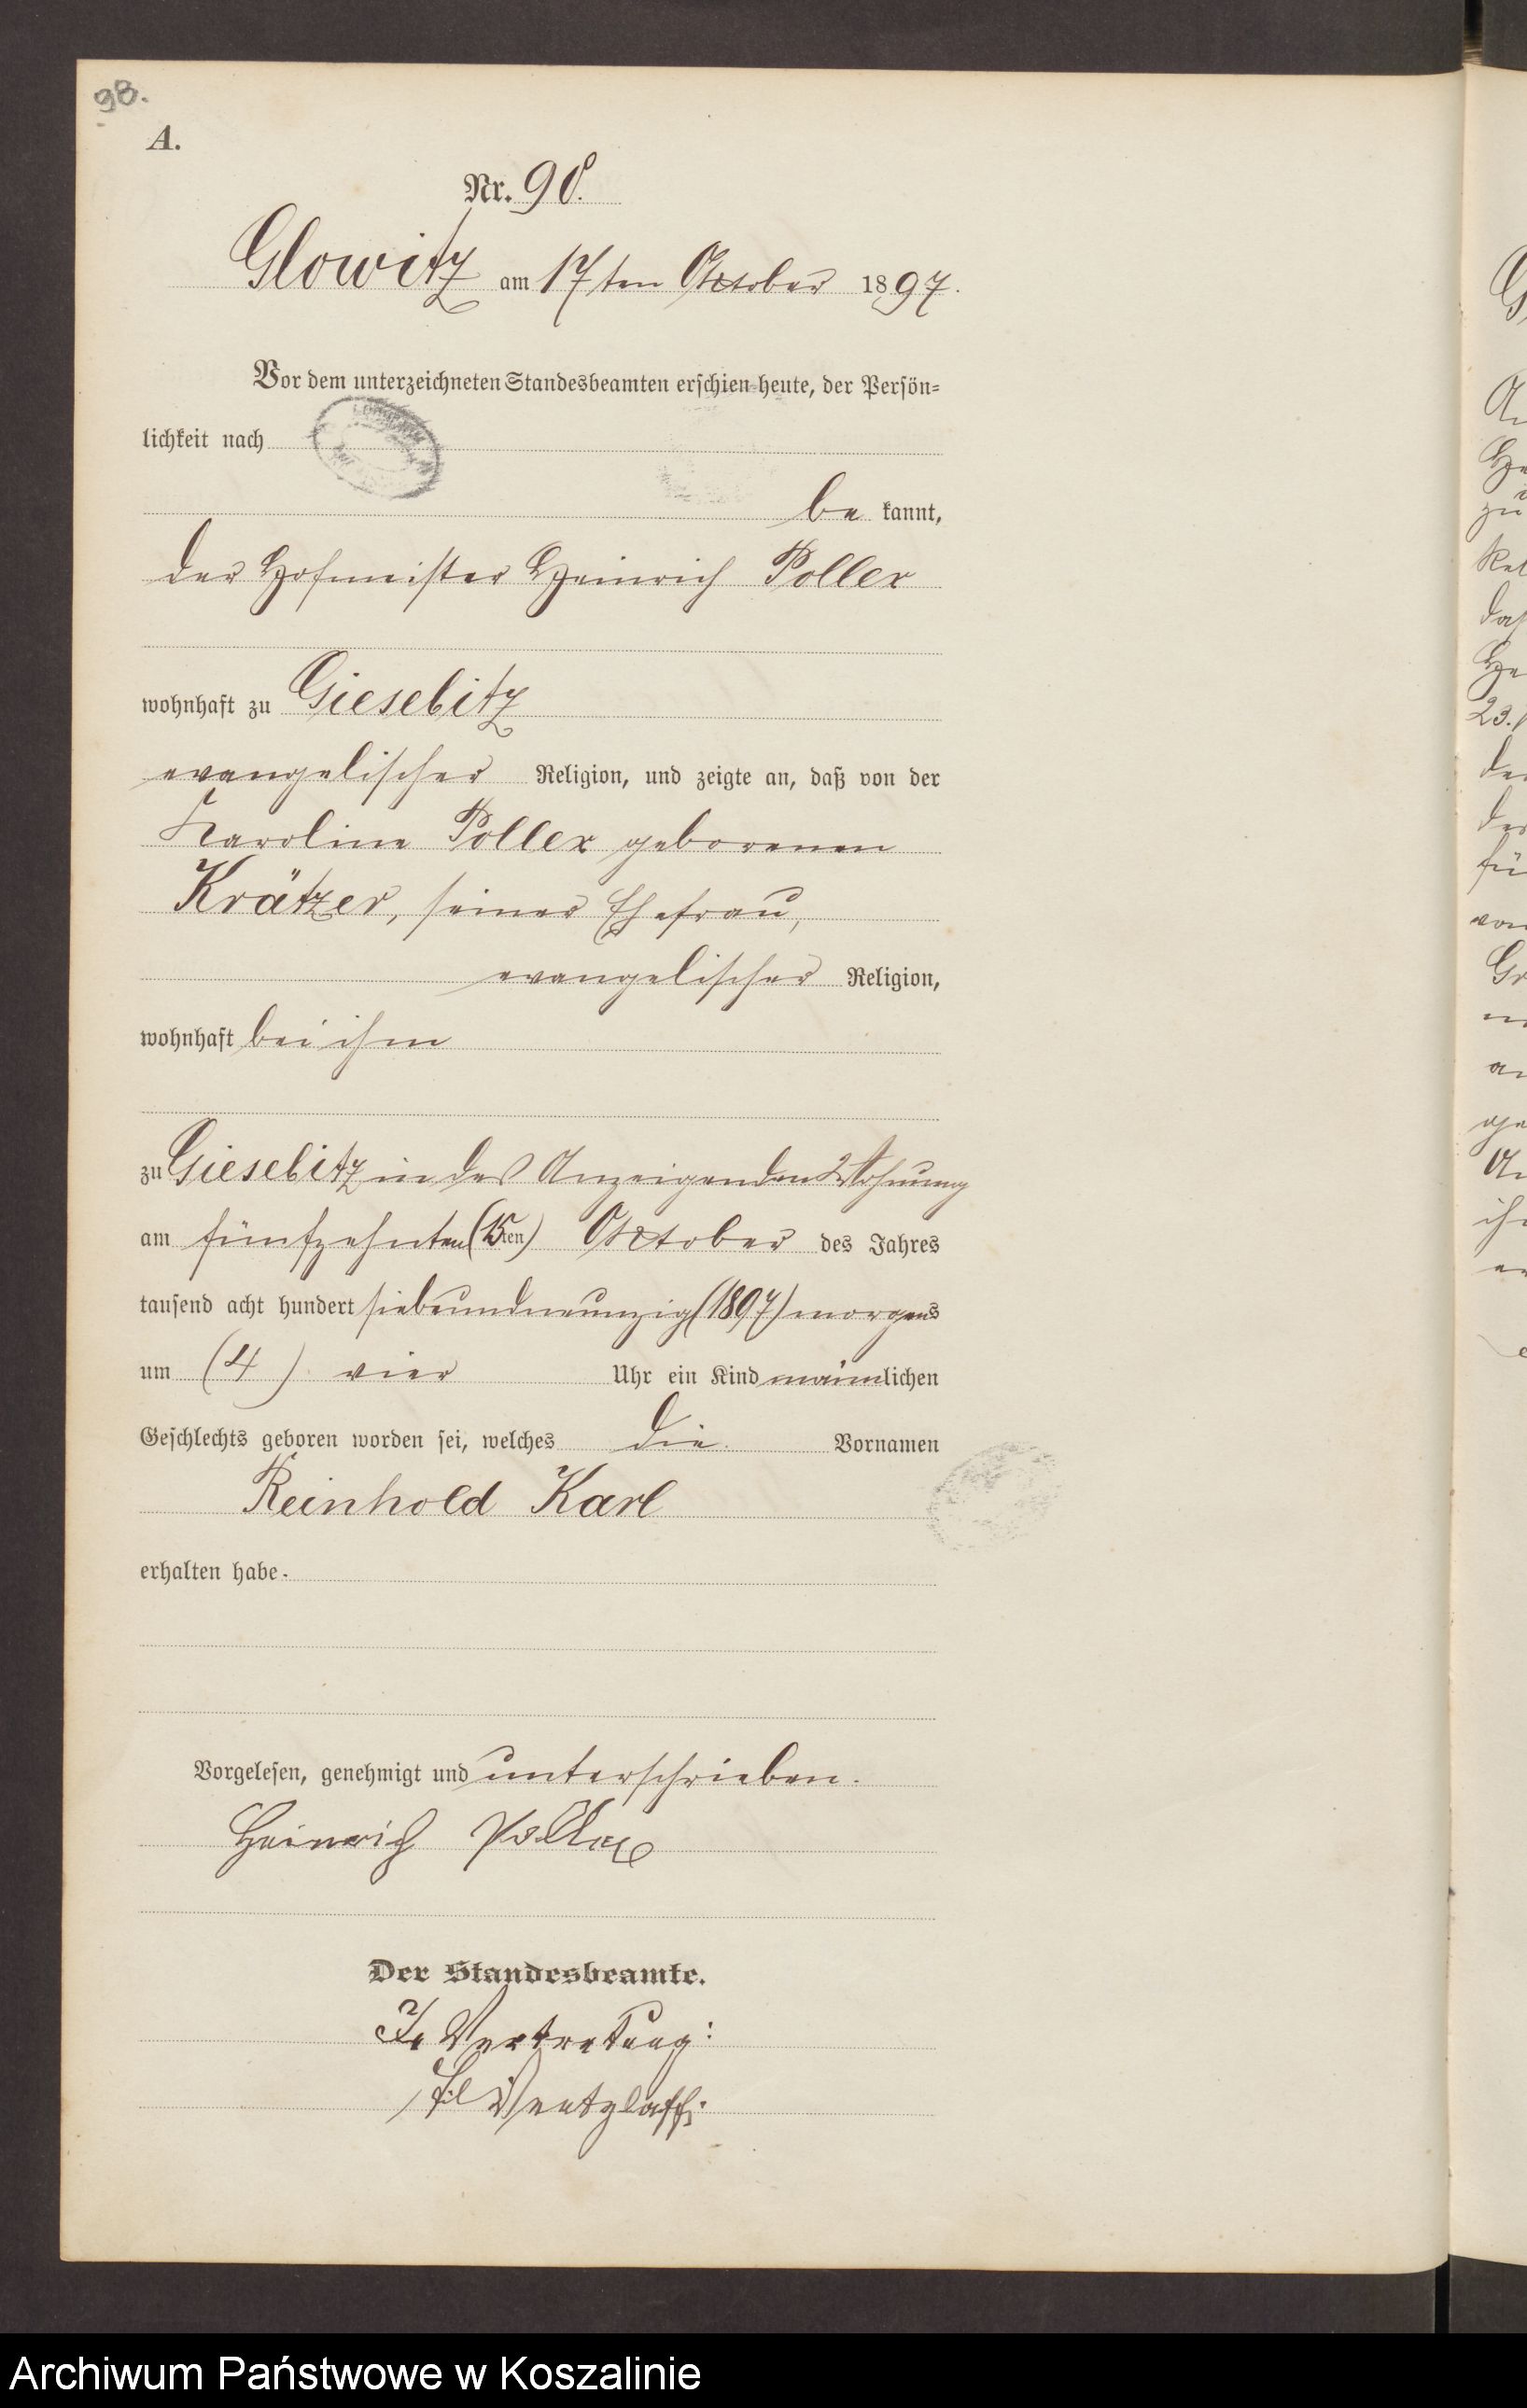 98.
A.
Nr. 98.
Glowitz am 17ten October 1897.
Vor dem unterzeichneten Standesbeamten erschien heute, der Persön-
lichkeit nach
be kannt,
der Hofmeister Heinrich Pollex
wohnhaft zu Giesebitz
evangelischer Religion, und zeigte an, daß von der
Karoline Pollex geborenen
Krätzer, seiner Ehefrau,
evangelischer Religion,
wohnhaft bei ihm
zu Giesebitz in des Anzeigenden Wohnung
am fünfzehnten (15ten) October des Jahres
tausend acht hundert siebenundneunzig (1897) morgens
um (4) vier Uhr ein Kind männlichen
Geschlechts geboren worden sei, welches die Vornamen
Reinhold Karl
erhalten habe.
Vorgelesen, genehmigt und unterschrieben.
Heinrich Pollex
Der Standesbeamte.
In Vertretung:
Wentzlaff.
Archiwum Państwowe w Koszalinie